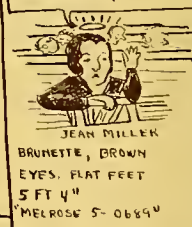 JEAN MILLER
BRUNETTE, BROWN
EYES, FLAT FEET
5 FT 4"
"MELROSE 5-0689"